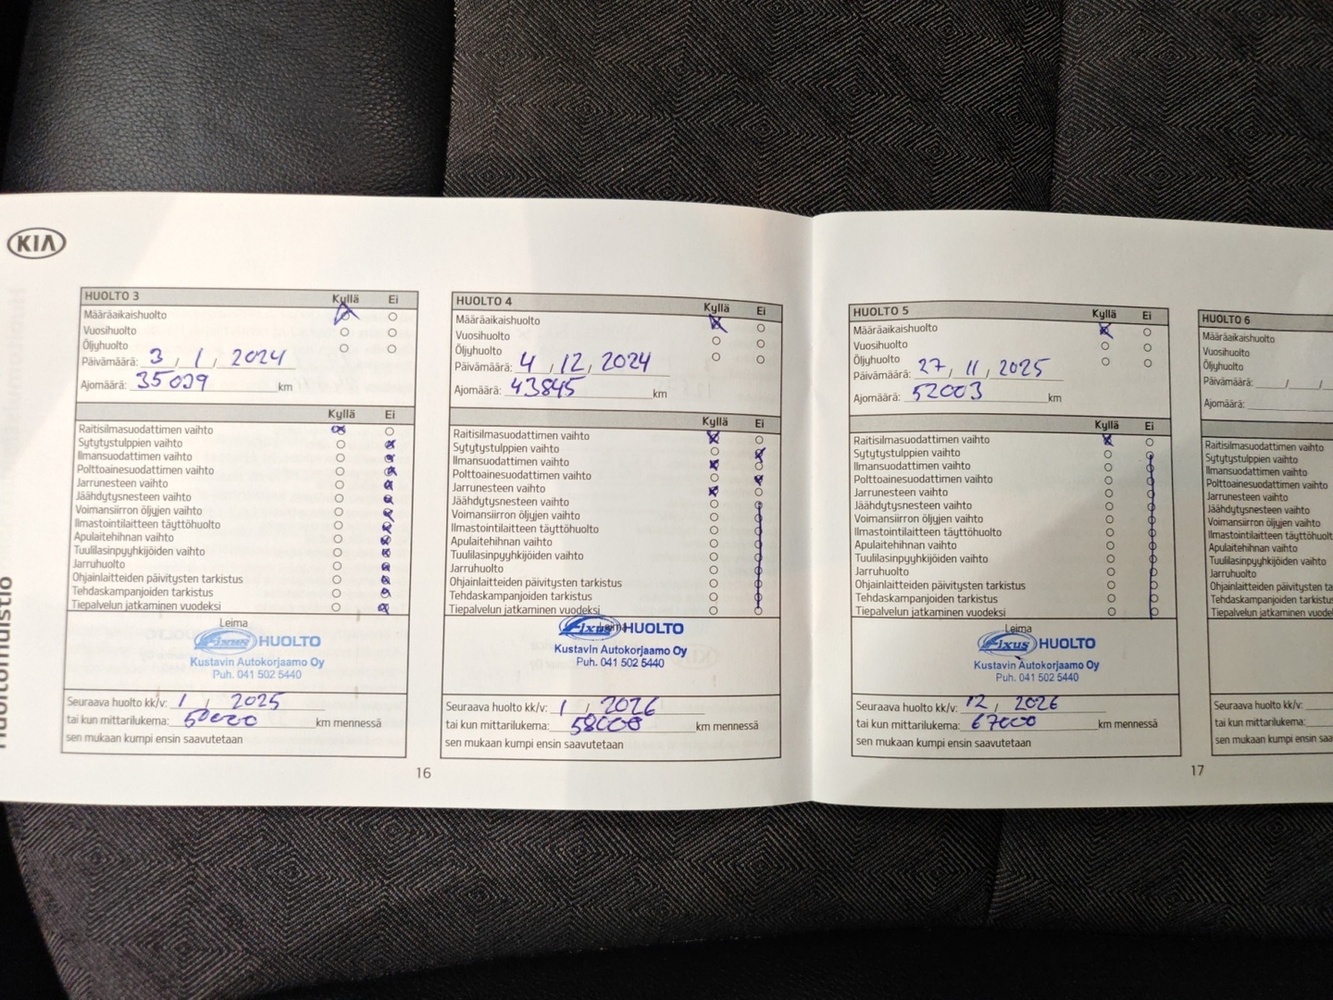 KIA
HUOLTO 3
Kyllä Ei
Määräaikaishuolto
Vuosihuolto
Öljyhuolto
Päivämäärä: 3 / 1 / 2024
Ajomäärä: 35009 km
Kyllä Ei
Raitisilmasuodattimen vaihto
Sytytystulppien vaihto
Ilmansuodattimen vaihto
Polttoainesuodattimen vaihto
Jarrunesteen vaihto
Jäähdytysnesteen vaihto
Voimansiirron öljyjen vaihto
Ilmastointilaitteen täyttöhuolto
Apulaitehihnan vaihto
Tuulilasinpyyhkijöiden vaihto
Jarruhuolto
Ohjainlaitteiden päivitysten tarkistus
Tehdaskampanjoiden tarkistus
Tiepalvelun jatkaminen vuodeksi
Leima
Fixus HUOLTO
Kustavin Autokorjaamo Oy
Puh. 041 502 5440
Seuraava huolto kk/v: 1 / 2025
tai kun mittarilukema: 50000 km mennessä
sen mukaan kumpi ensin saavutetaan
16
HUOLTO 4
Kyllä Ei
Määräaikaishuolto
Vuosihuolto
Öljyhuolto
Päivämäärä: 4 / 12 / 2024
Ajomäärä: 43845 km
Kyllä Ei
Raitisilmasuodattimen vaihto
Sytytystulppien vaihto
Ilmansuodattimen vaihto
Polttoainesuodattimen vaihto
Jarrunesteen vaihto
Jäähdytysnesteen vaihto
Voimansiirron öljyjen vaihto
Ilmastointilaitteen täyttöhuolto
Apulaitehihnan vaihto
Tuulilasinpyyhkijöiden vaihto
Jarruhuolto
Ohjainlaitteiden päivitysten tarkistus
Tehdaskampanjoiden tarkistus
Tiepalvelun jatkaminen vuodeksi
Leima
Fixus HUOLTO
Kustavin Autokorjaamo Oy
Puh. 041 502 5440
Seuraava huolto kk/v: 1 / 2026
tai kun mittarilukema: 58000 km mennessä
sen mukaan kumpi ensin saavutetaan
HUOLTO 5
Kyllä Ei
Määräaikaishuolto
Vuosihuolto
Öljyhuolto
Päivämäärä: 27 / 11 / 2025
Ajomäärä: 52003 km
Kyllä Ei
Raitisilmasuodattimen vaihto
Sytytystulppien vaihto
Ilmansuodattimen vaihto
Polttoainesuodattimen vaihto
Jarrunesteen vaihto
Jäähdytysnesteen vaihto
Voimansiirron öljyjen vaihto
Ilmastointilaitteen täyttöhuolto
Apulaitehihnan vaihto
Tuulilasinpyyhkijöiden vaihto
Jarruhuolto
Ohjainlaitteiden päivitysten tarkistus
Tehdaskampanjoiden tarkistus
Tiepalvelun jatkaminen vuodeksi
Leima
Fixus HUOLTO
Kustavin Autokorjaamo Oy
Puh. 041 502 5440
Seuraava huolto kk/v: 12 / 2026
tai kun mittarilukema: 67000 km mennessä
sen mukaan kumpi ensin saavutetaan
17
HUOLTO 6
Määräaikaishuolto
Vuosihuolto
Öljyhuolto
Päivämäärä: / /
Ajomäärä:
Raitisilmasuodattimen vaihto
Sytytystulppien vaihto
Ilmansuodattimen vaihto
Polttoainesuodattimen vaihto
Jarrunesteen vaihto
Jäähdytysnesteen vaihto
Voimansiirron öljyjen vaihto
Ilmastointilaitteen täyttöhuolt
Apulaitehihnan vaihto
Tuulilasinpyyhkijöiden vaihto
Jarruhuolto
Ohjainlaitteiden päivitysten ta
Tehdaskampanjoiden tarkistus
Tiepalvelun jatkaminen vuodeks
Seuraava huolto kk/v:
tai kun mittarilukema:
sen mukaan kumpi ensin saa